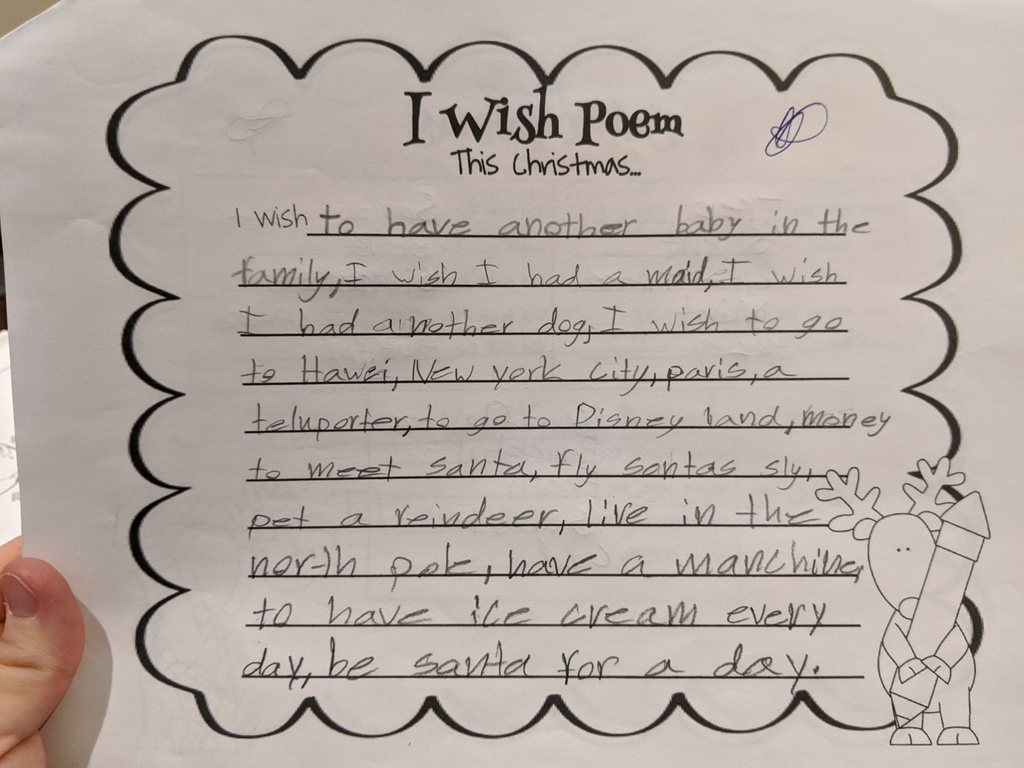 I Wish Poem
This Christmas...
I wish to have another baby in the
family, I wish I had a maid, I wish
I had another dog, I wish to go
to Hawei, New york city, paris, a
teluporter, to go to Disney land, money
to meet santa, fly santas sly,
pet a reindeer, live in the
north pole, have a manchine,
to have ice cream every
day, be santa for a day.